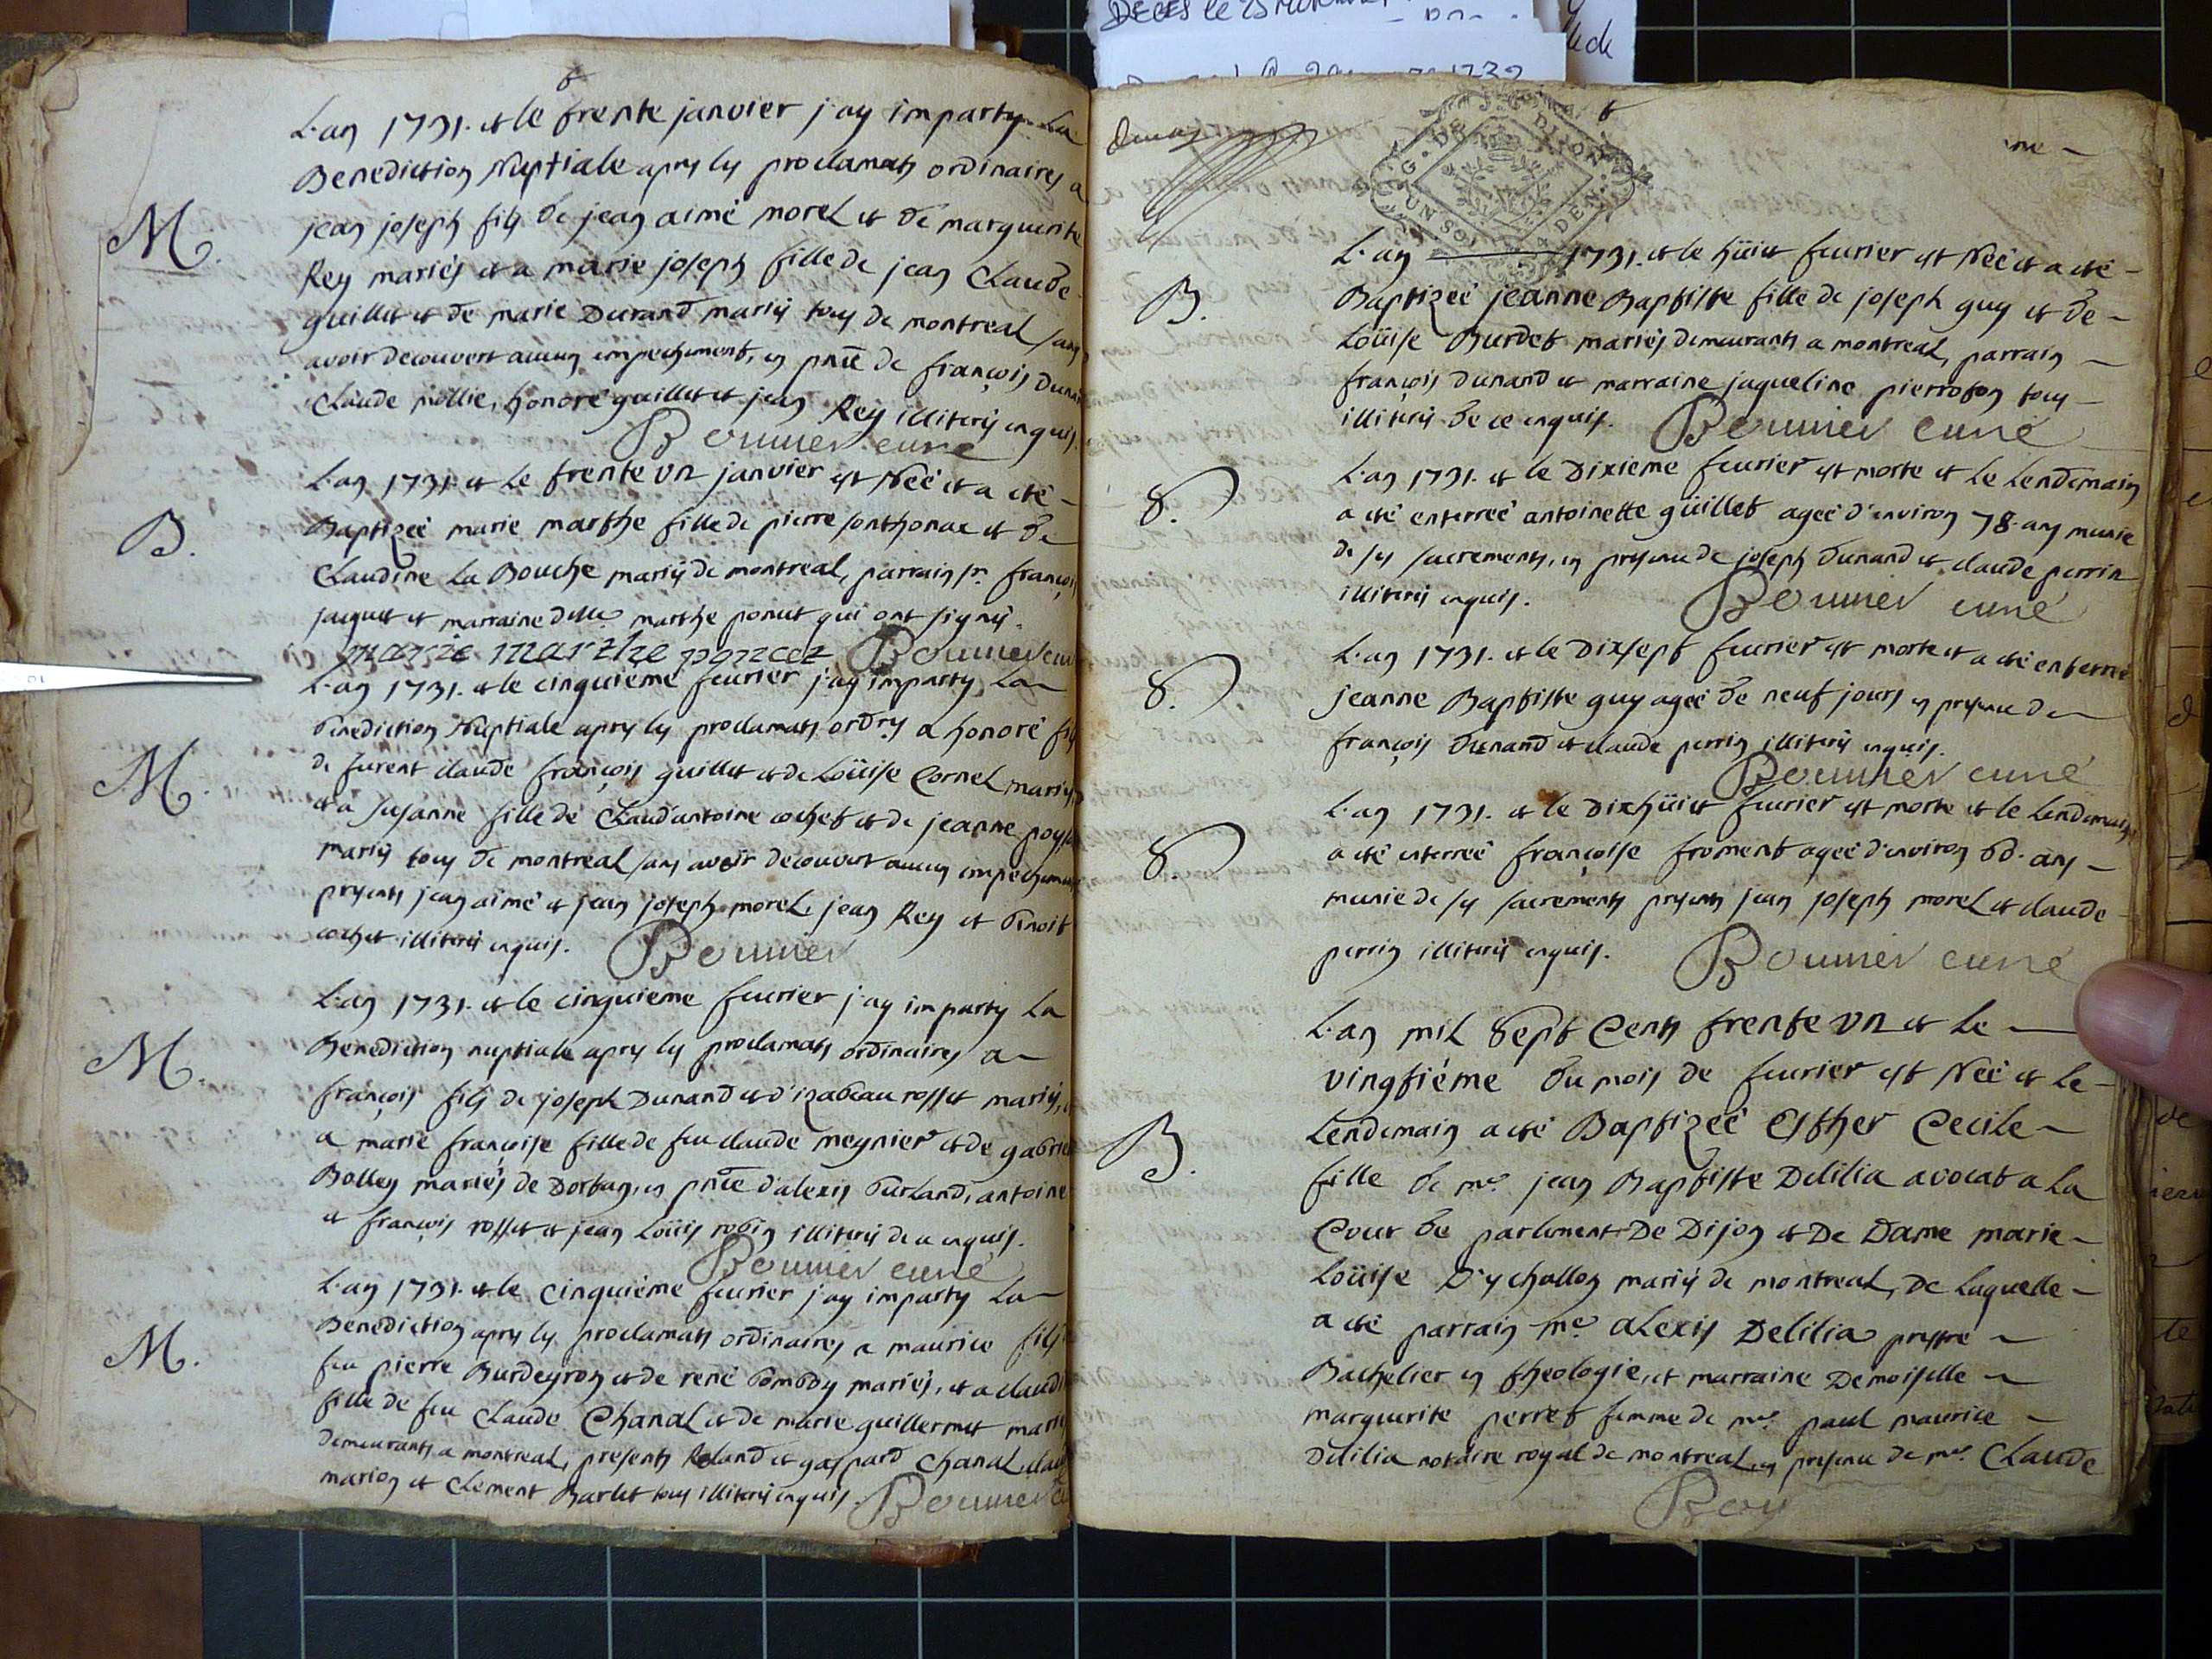 DECES le 25
1732
L'an 1731. et le trente janvier j'ay imparty La
Benediction Nuptiale apres les proclamats ordinaires a
jean joseph fils de jean aimé morel et de marguerite
M.
Rey mariés et a marie joseph fille de jean Claude
guillet et de marie Dunand mariés tous de montreal sans
avoir decouvert aucun empechement, en pnce de françois Dunand
Claude mollie, honoré guillet et jean Rey illiterés enquis.
Bouuier curé
L'an 1731. et Le trente un janvier est Néé et a eté
B.
Baptizéé marie marthe fille de pierre sonthonax et de
Claudine La Bouche mariés de montreal, parrain sr. françois
jaquet et marraine delle marthe poncet qui ont signés.
marie marthe poncet Bouuier curé
L'an 1731. et le cinquieme feurier j'ay imparty La
Benediction Nuptiale apres les proclamats ordres a honoré fils
M.
de furent claude françois guillet et de Loüise Cornel mariés,
et a susanne fille de Claud'antoine cochet et de jeanne
mariés tous de montreal sans avoir decouvert aucun empechement
presents jean aimé et jean joseph morel, jean Rey et Benoit
cochet illiterés enquis. Bouuier
L'an 1731. et le cinquieme feurier j'ay imparty La
Benediction nuptiale apres les proclamats ordinaires a
M.
françois fils de joseph Dunand et d'izabeau rosset mariés, et
a marie françoise fille de feu claude meynier et de gabrielle
Bolley mariés de Dortan, en pnce d'alexis Burland, antoine
et françois rosset et jean Loüis robin illiterés de ce enquis.
Bouuier curé
L'an 1731. et le cinquieme feurier j'ay imparty La
Benediction apres les proclamats ordinaires a maurice fils
M.
feu pierre Burdeyron et de rené Bomboy mariés, et a claudine
fille de feu Claude Chanal et de marie guillermet mariés
demeurants a montreal, presents Roland et gaspard Chanal, claude
marion et Clement Barlet tous illiterés enquis. Bouuier curé
G. DE DIJON
UN SOL 4 DEN.
L'an 1731. et le hüit feurier est Néé et a eté
B.
Baptizéé jeanne Baptiste fille de joseph guy et de
Loüise Burdet mariés demeurants a montreal, parrain
françois dunand et marraine jaqueline pierroton tous
illiterés de ce enquis. Bouuier curé
L'an 1731. et le Dixieme feurier est morte et le Lendemain
S.
a eté enterréé antoinette güillet agéé d'environ 78. ans munie
de ses sacrements, en presence de joseph dunand et claude perrin
illiterés enquis. Bouuier curé
L'an 1731. et le Dixsept feurier est morte et a eté enterréé
S.
jeanne Baptiste guy agéé de neuf jours en presence de
françois dunand et claude perrin illiterés enquis.
Bouuier curé
L'an 1731. et le Dixhüit feurier est morte et le Lendemain
S.
a eté enterréé françoise froment agéé d'environ ans
munie de ses sacrements presents jean joseph morel et claude
perrin illiterés enquis. Bouuier curé
L'an mil Sept Cents trente un et Le
vingtiéme du mois de feurier est Néé et Le
Lendemain a eté Baptizéé Esther Cecile
B.
fille de me. jean Baptiste Delilia avocat a La
Cour de parlement De Dijon et De Dame marie
Loüise D'ychallon mariés de montreal, De Laquelle
a eté parrain me. alexis Delilia prestre
Bachelier en theologie, et marraine Demoiselle
marguerite perret femme de me. paul maurice
Delilia notaire royal de montreal, en presence de me. Claude
Boy